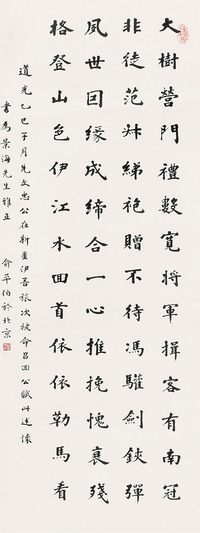 大樹營門禮數寬將軍揖客有南冠
非徒范叔綈袍贈不待馮驩劍鋏彈
夙世因緣成締合一心推挽愧衰殘
格登山色伊江水回首依依勒馬看
道光乙巳子月先文忠公在新疆伊吾旅次被命召回公賦此述懷
書為景海先生雅正 俞平伯於北京